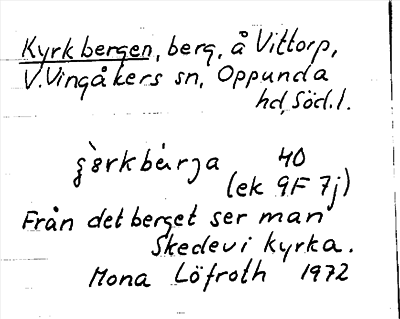 Kyrkbergen, berg, å Vittorp,
V. Vingåkers sn, Oppunda
hd, Söd. l.
40
(ek 9F 7j)
Från det berget ser man
Skedevi kyrka.
Mona Löfroth 1972